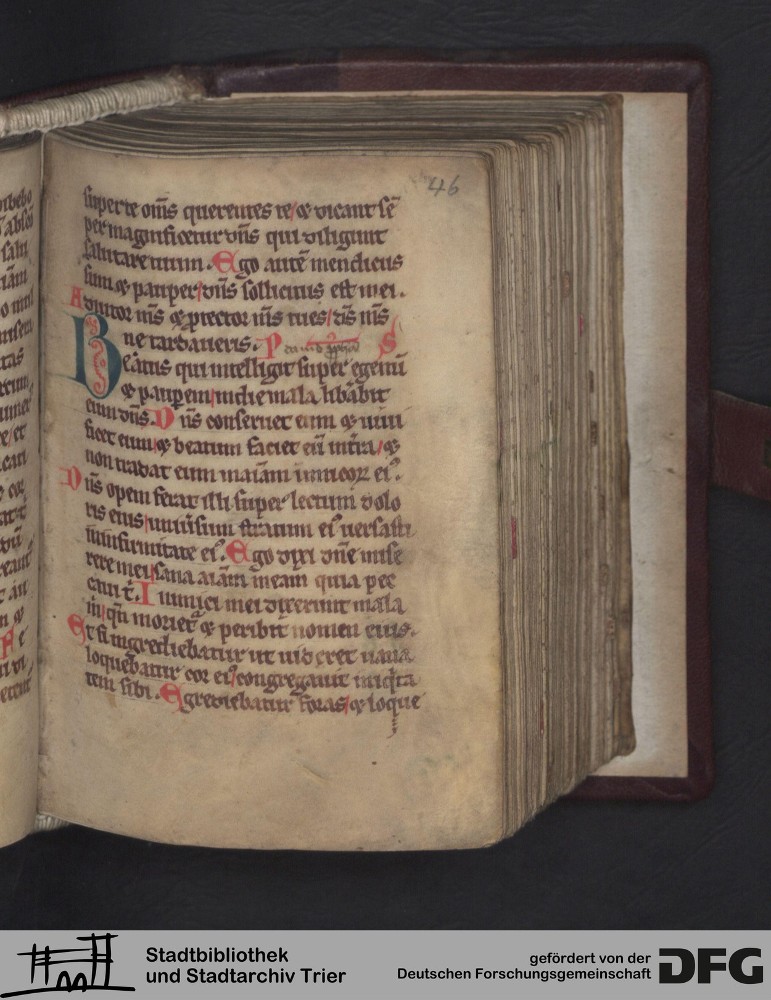 46
super te om̄s querentes te / & dicant sē
per magnificetur dn̄s qui diligunt
salutare tuum. Ego autē mendicus
sum & pauper / dn̄s sollicitus est mei.
Adiutor m̄s & p̄tector m̄s tu es / ds̄ m̄s
ne tardaveris. P S
Beatus qui intelligit super egenū
& paupem / in die mala libabit
eum dn̄s. Dn̄s conservet eum & vivi
ficet eum / & beatum faciet eū in tr̄a / &
non tradat eum in aīam inimicor ei⁹.
Dn̄s opem ferat illi super lectum dolo
ris eius / universum stratum ei⁹ versasti
in infirmitate ei⁹. Ego dixi dn̄e mise
rere mei / sana aīam meam quia pec
cavi t̄. Inimici mei dixerunt mala
m̄ / qn̄ moriet̄ & peribit nomen eius.
Et si ingrediebatur ut videret vana
loquebatur cor ei⁹ / congregavit iniq̄ta
tem sibi. Egrediebatur foras / & loque
Stadtbibliothek
und Stadtarchiv Trier
gefördert von der
Deutschen Forschungsgemeinschaft
DFG